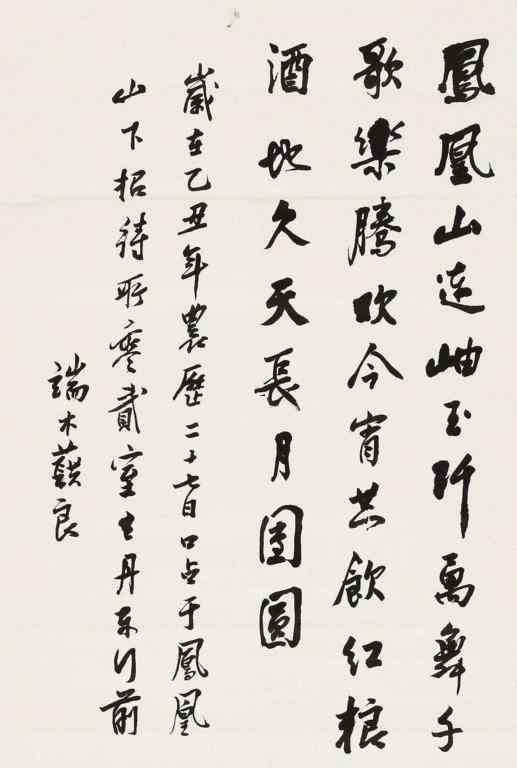 鳳凰山连岫玉阡萬舞千
歌樂騰欢今宵共飲紅粮
酒地久天長月團圓
歲在乙丑年農歷二十七日口占于鳳凰
山下招待所零貳室去丹東行前
端木蕻良